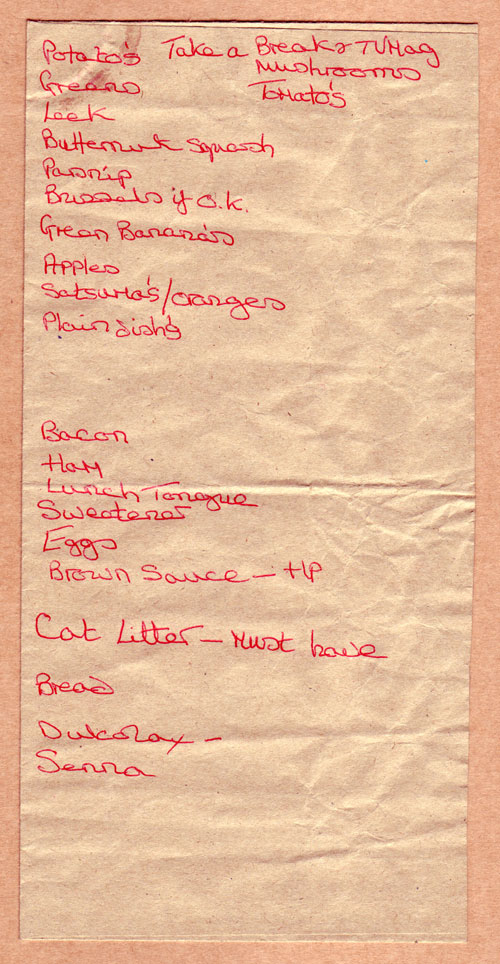 Potato's Take a Break & TV Mag
Mushrooms
Greens
Tomato's
Leek
Butternut Squash
Parsnip
Brussels if O.K.
Green Banana's
Apples
Satsuma's/oranges
Plain

Bacon
Ham
Lunch Tongue
Sweetener
Eggs
Brown Sauce - HP
Cat Litter - Must have
Bread
Dulcolax -
Senna